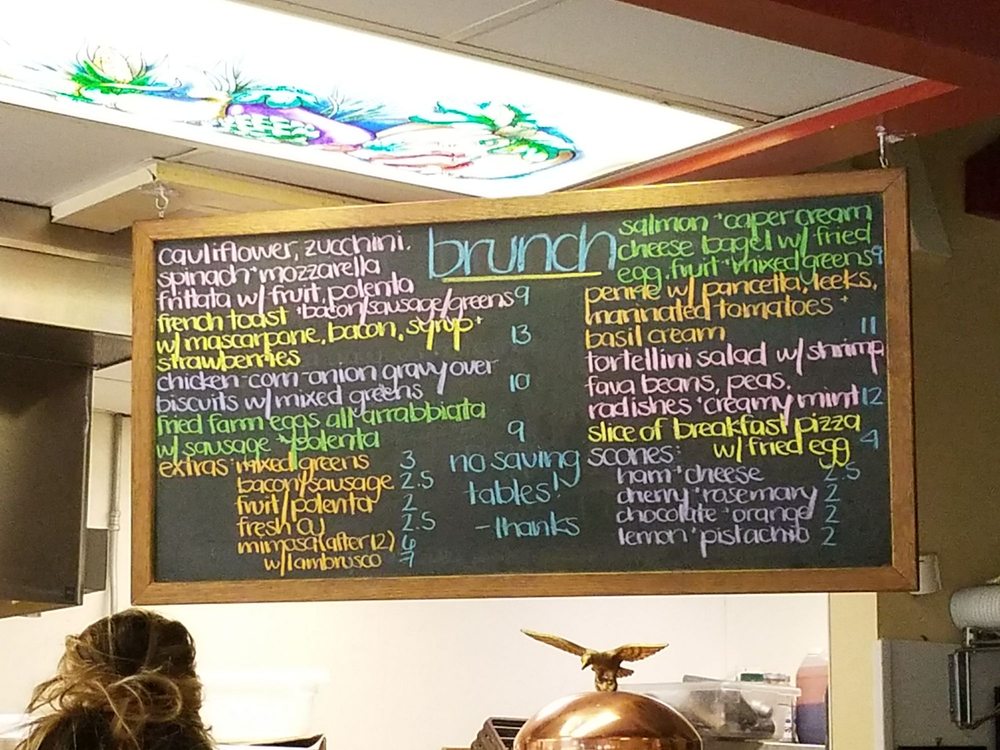 brunch
cauliflower, zucchini,
spinach + mozzarella
frittata w/ fruit, polenta
+ bacon/sausage/greens 9
french toast
w/ mascarpone, bacon, syrup + 13
strawberries
chicken-corn-onion gravy over
biscuits w/ mixed greens 10
fried farm eggs all arrabbiata
w/ sausage + polenta 9
extras: mixed greens 3
bacon/sausage 2.5
fruit/polenta 2
fresh oj 2.5
mimosa (after 12) 6
w/ lambrusco 7
no saving
tables!
- thanks
salmon + caper cream
cheese bagel w/ fried
egg, fruit + mixed greens 9
penne w/ pancetta, leeks,
marinated tomatoes +
basil cream 11
tortellini salad w/ shrimp
fava beans, peas,
radishes + creamy mint 12
slice of breakfast pizza
w/ fried egg 4
scones:
ham + cheese 2.5
cherry + rosemary 2
chocolate + orange 2
lemon + pistachio 2